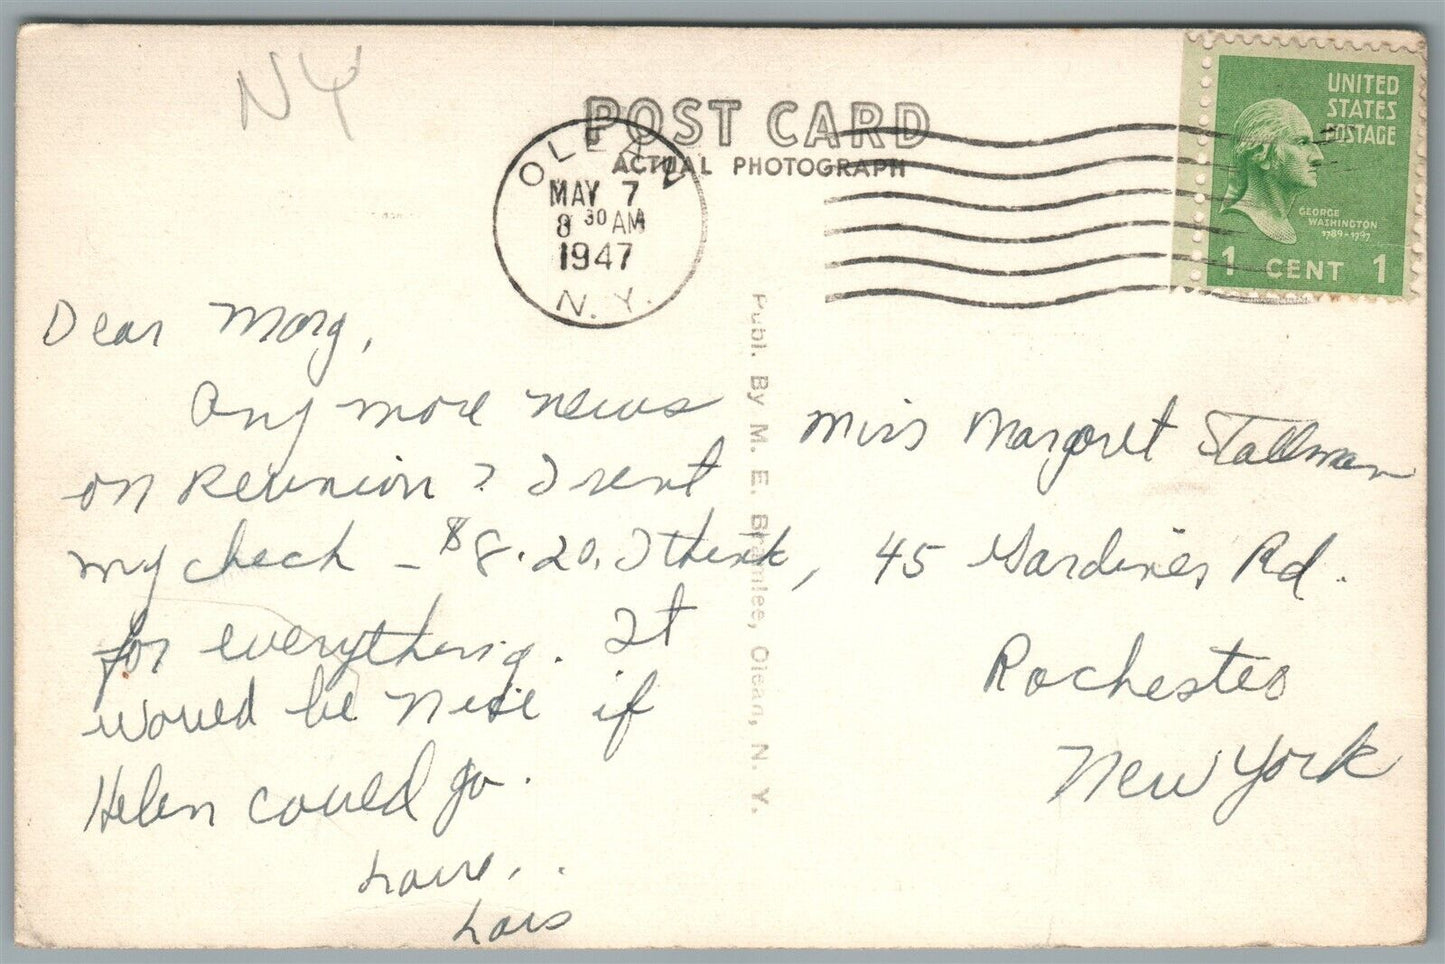 NY
POST CARD
ACTUAL PHOTOGRAPH
OLEAN
MAY 7
8 30 AM
1947
N. Y.
UNITED
STATES
POSTAGE
GEORGE
WASHINGTON
1789-1797
1 CENT 1
Dear Marg,
Any more news
on Reunion? I sent
my check – $8.20, I think,
for everything. It
would be nice if
Helen could go.
Love,
Lois
Publ. By M. E. Bromlee, Olean, N. Y.
Miss Margaret Stallman
45 Gardiner Rd.
Rochester
New York